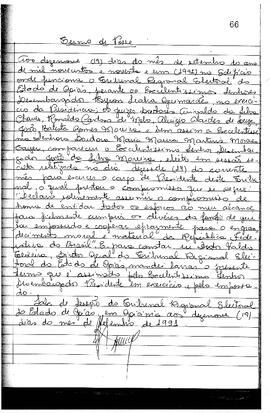 66
Termo de Posse
Aos dezenove (19) dias do mês de setembro do ano
de mil novecentos e noventa e um (1991) no Edifício
onde funciona o Tribunal Regional Eleitoral do
Estado de Goiás, perante os Excelentíssimos Senhores
Desembargador Guimarães, no exercí-
cio da Presidência, os juízes da Silva
Chaves, Ronaldo de Melo, de
João Batista Gomes Moreira e bem assim a Excelentíssi-
ma Senhora Doutora Maria
compareceu o Excelentíssimo Senhor Desembar-
gador João da Silva Moreira, eleito em sessão se-
creta realizada no dia dezoito (18) do corrente
mês para exercer o cargo de Presidente deste Tribu-
nal, o qual prestou o compromisso que se segue:
"declaro solenemente assumir o compromisso de
honra de envidar todos os esforços ao meu alcance
para fielmente cumprir os deveres da função de que
fui empossado e cooperar eficazmente para o engran-
decimento moral e material da República Fede-
rativa do Brasil". E para constar eu
Teixeira, Diretor Geral do Tribunal Regional Elei-
toral do Estado de Goiás, mandei lavrar o presente
termo que é assinado pelo Excelentíssimo Senhor
Desembargador Presidente em exercício e pelo empossa-
do.
Sala de Sessões do Tribunal Regional Eleitoral
do Estado de Goiás, em Goiânia aos dezenove (19)
dias do mês de setembro de 1991